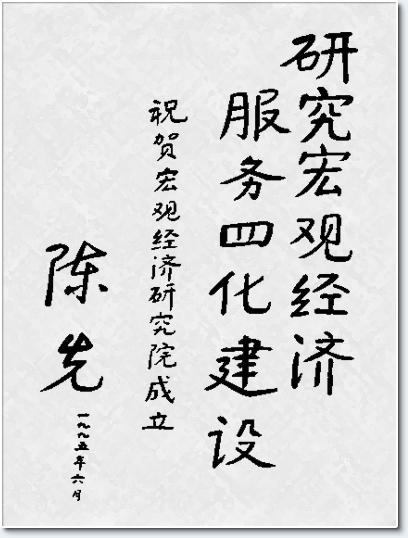 研究宏观经济
服务四化建设
祝贺宏观经济研究院成立
陈先
一九九五年六月